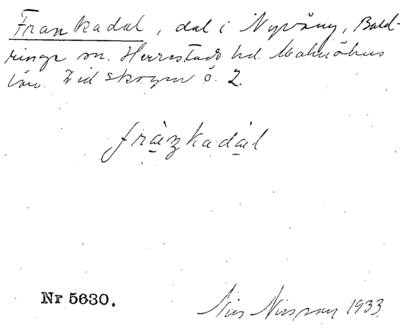 Frankadal, dal i Nyvång, Bald-
ringe sn. Herrestads hd. Malmöhus
län. Vid skogen ö. 2.
fràzkadàl
Nr 5630.
Nils Nilsson 1933